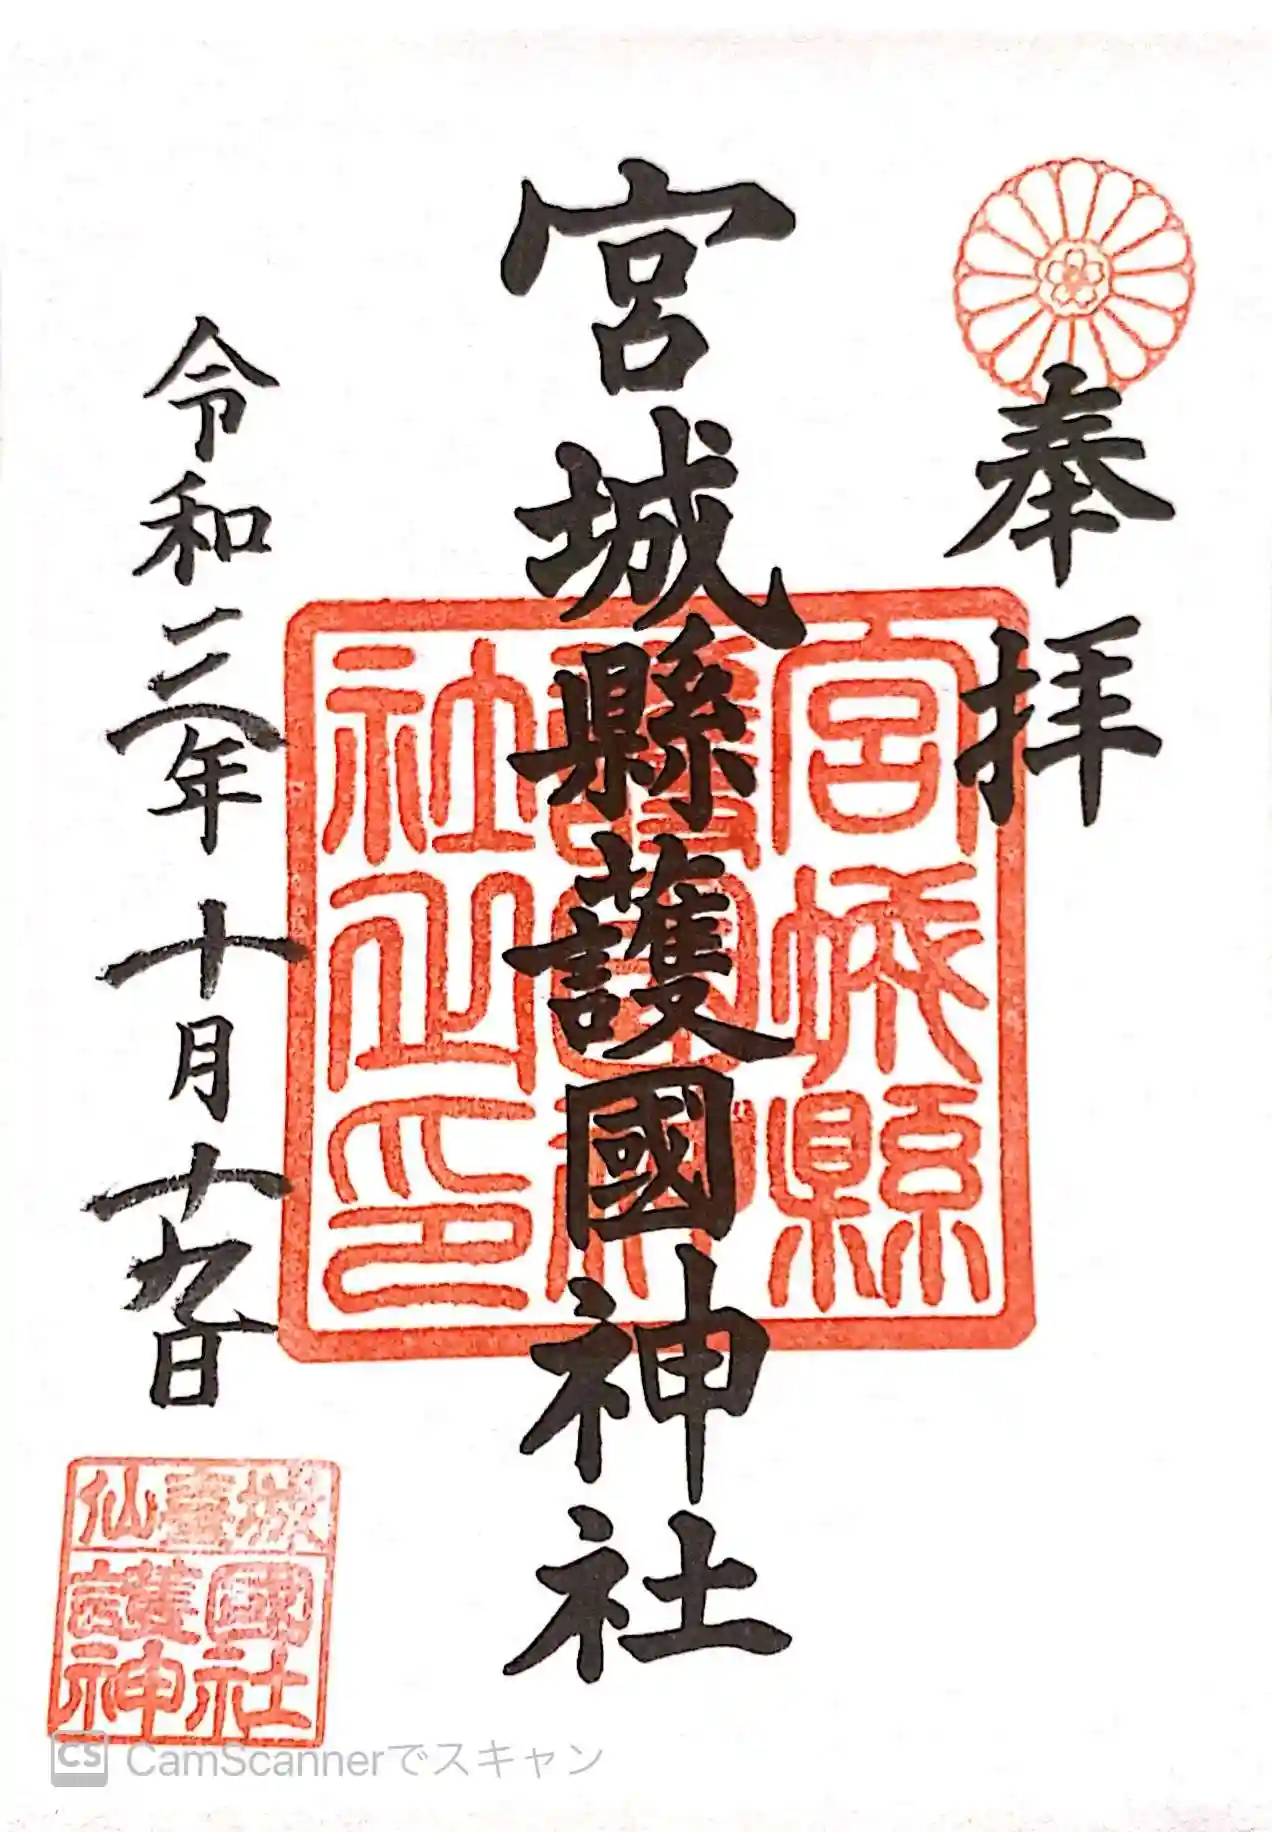 奉拝
宮城縣護國神社
宮城縣
護國神
社之印
令和三年十月十九日
仙臺城
護國
神社
CS CamScannerでスキャン